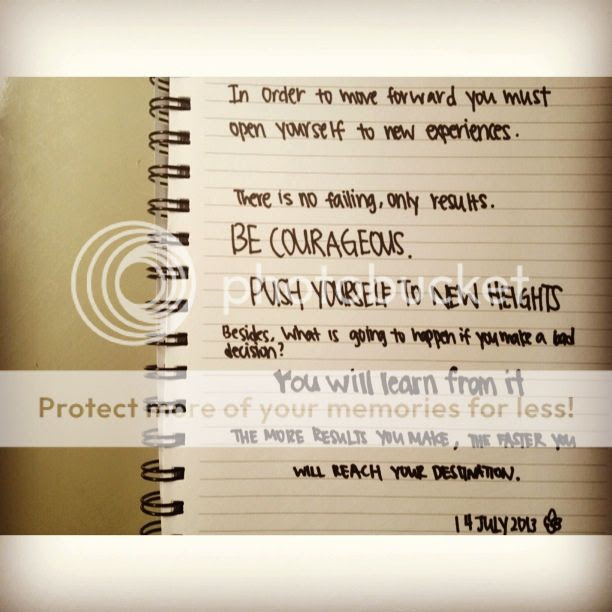 In order to move forward you must
open yourself to new experiences.
There is no failing, only results.
BE COURAGEOUS.
photobucket
PUSH YOURSELF TO NEW HEIGHTS
Besides, what is going to happen if you make a bad
decision?
You will learn from it
Protect more of your memories for less!
THE MORE RESULTS YOU MAKE, THE FASTER YOU
WILL REACH YOUR DESTINATION.
14 JULY 2013